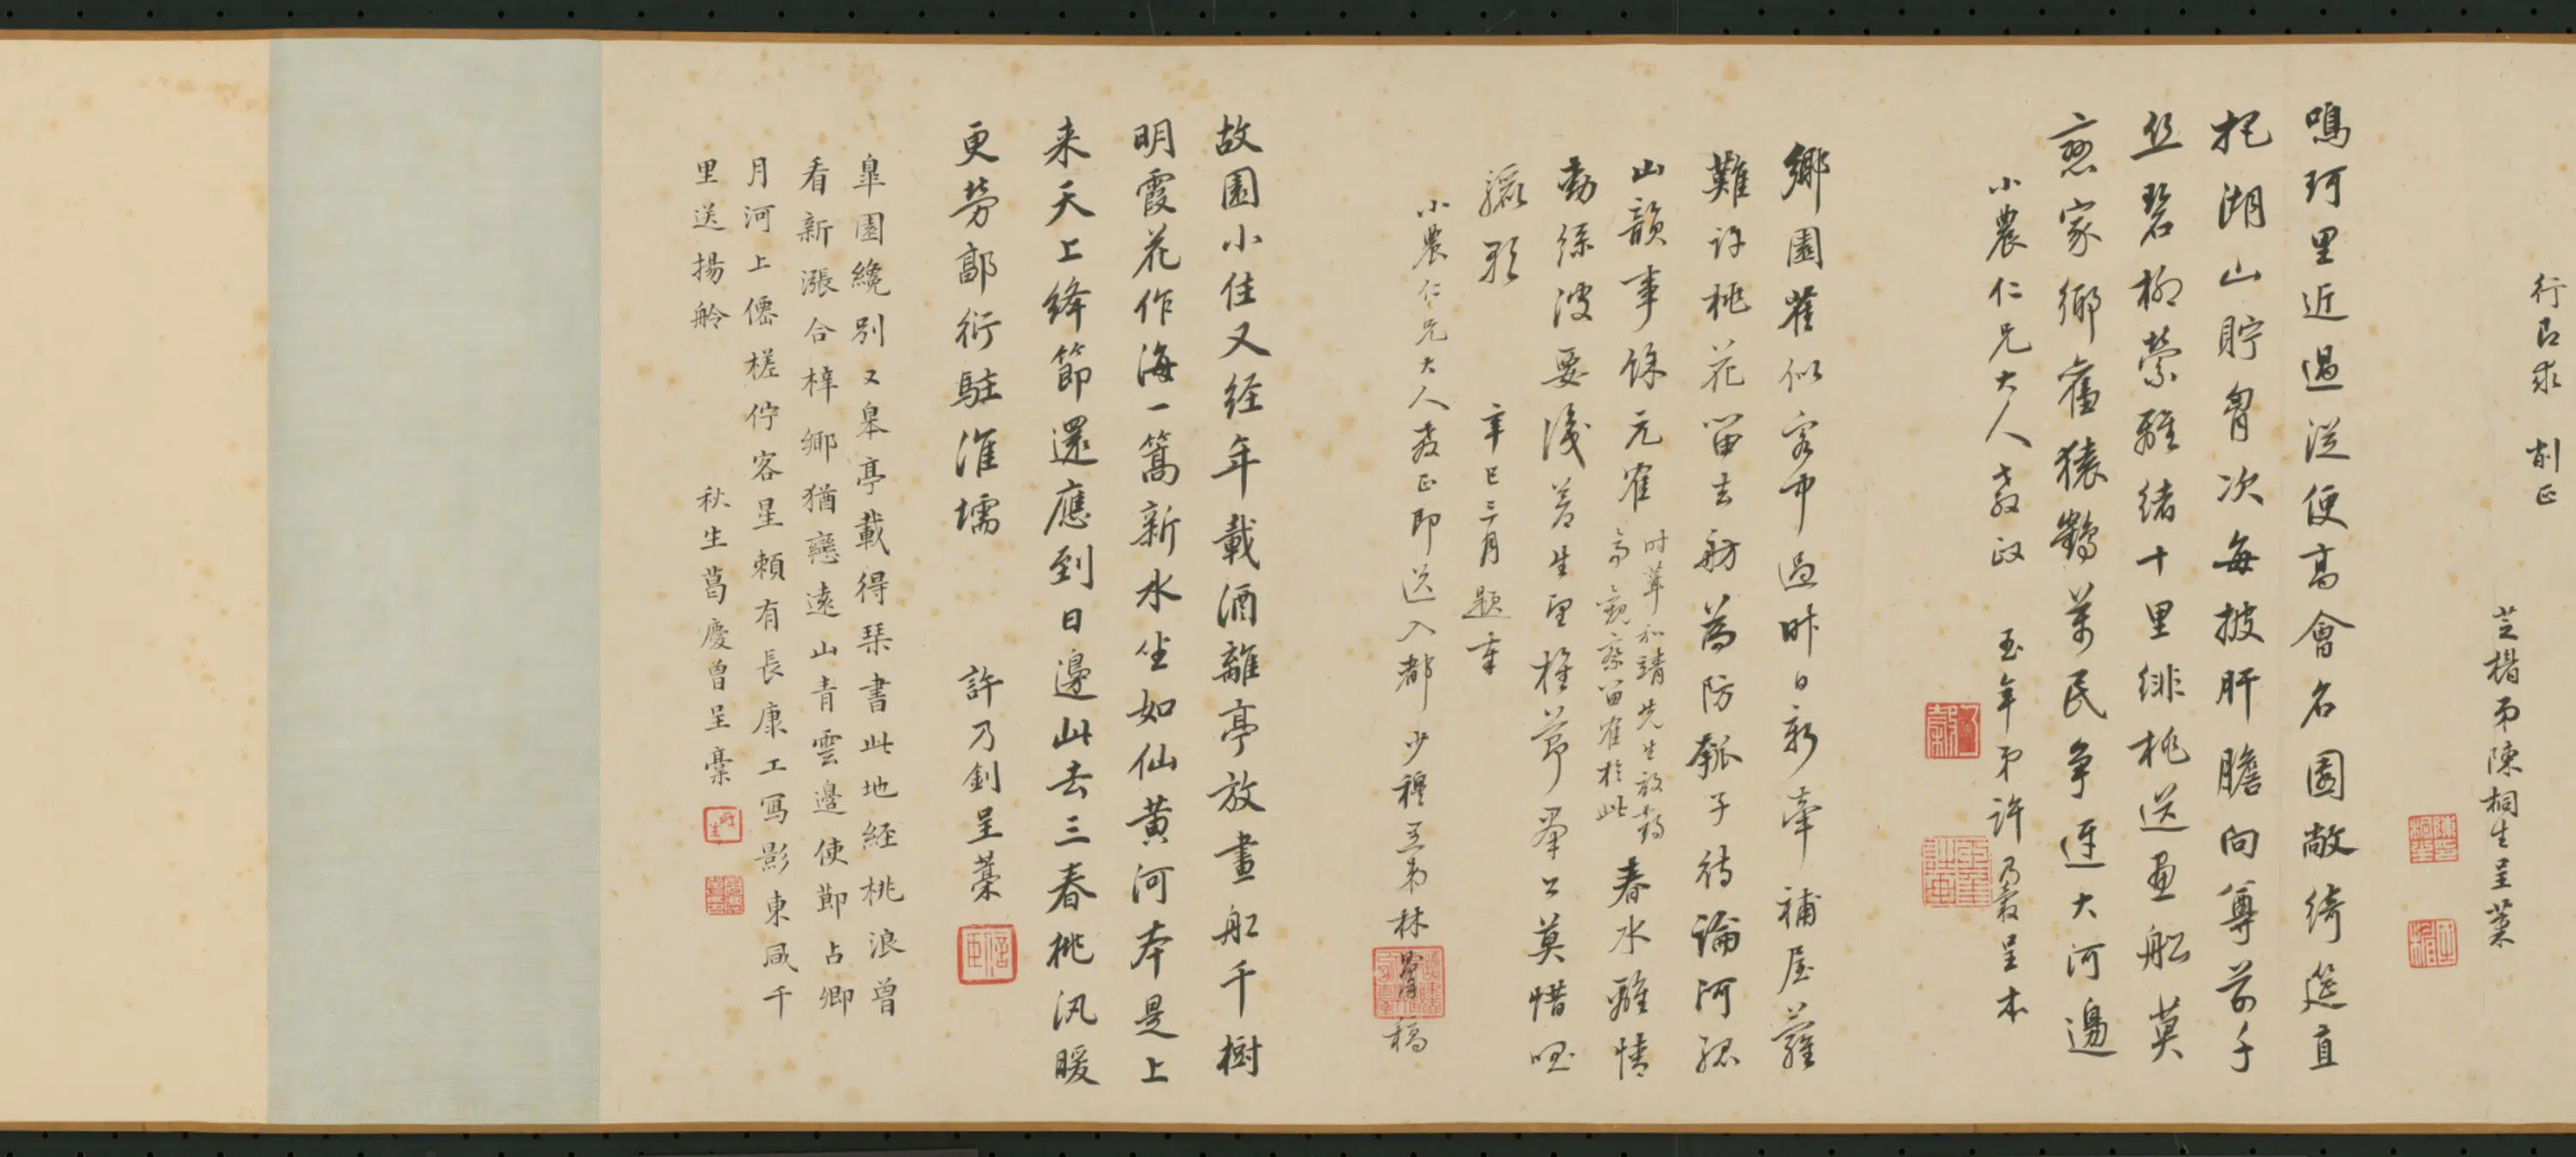 行即求 削正
芝楣弟陳桐生呈藁
鳴珂里近過從便高會名園敞綺筵直
把湖山貯胷次每披肝膽向尊前千
絲碧柳縈離緒十里緋桃送畫船莫
戀家鄉舊猿鶴萬民爭迓大河邊
小農仁兄大人教政 玉年弟許乃穀呈本
鄉園舊似客中過昨日新牽補屋蘿
難許桃花留去舫為防瓠子待論河孤
山韻事餘元寉
春水離情
動綠波要淺蒼生望桂節羣公莫惜唱
驪歌 辛巳三月題奉
小農仁兄大人教正即送入都 少穆弟林則徐稿
故園小住又経年載酒離亭放畫船千樹
明霞花作海一篙新水坐如仙黃河本是上
来天上絳節還應到日邊此去三春桃汛暖
更勞鄗衍駐淮壖 許乃釗呈藁
皐園纔別又皋亭載得琹書此地経桃浪曾
看新漲合梓鄉猶戀遠山青雲邊使節占卿
月河上僊槎佇客星頼有長康工寫影東風千
里送揚舲 秋生葛慶曾呈藁